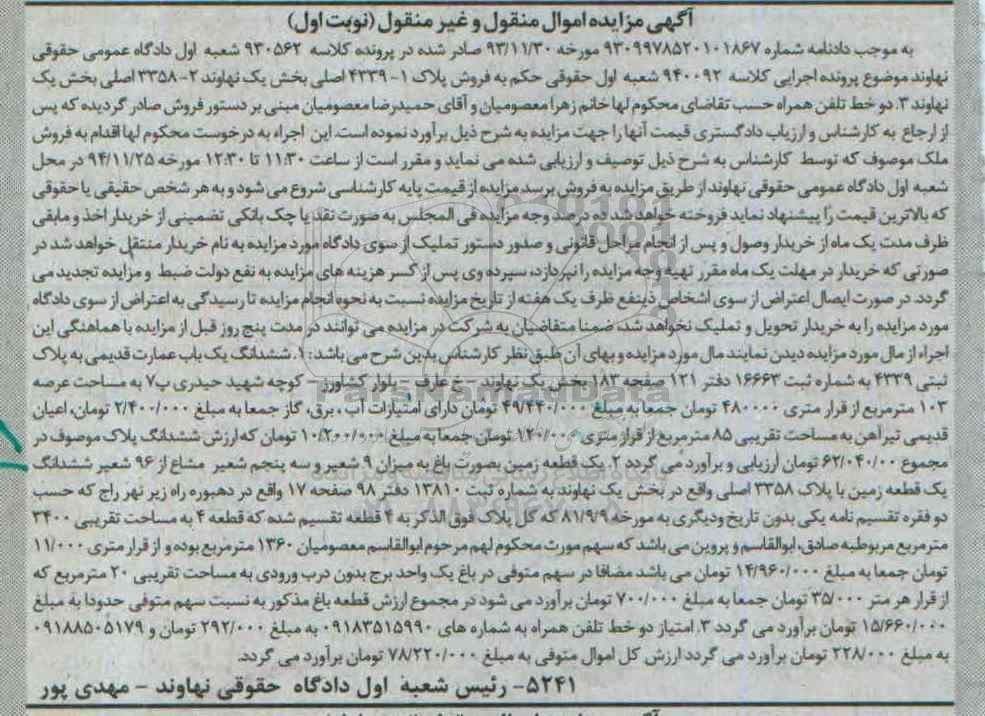 آگهی مزایده اموال منقول و غیر منقول (نوبت اول)
به موجب دادنامه شماره ۹۳۰۹۹۷۸۵۲۰۱۰۱۸۶۷ مورخه ۹۳/۱۱/۳۰ صادر شده در پرونده کلاسه ۹۳۰۵۶۲ شعبه اول دادگاه عمومی حقوقی
نهاوند موضوع پرونده اجرایی کلاسه ۹۴۰۰۹۲ شعبه اول حقوقی حکم به فروش پلاک ۱- ۴۳۳۹ اصلی بخش یک نهاوند ۲- ۳۳۵۸ اصلی بخش یک
نهاوند ۳. دو خط تلفن همراه حسب تقاضای محکوم لها خانم زهرا معصومیان و آقای حمیدرضا معصومیان مبنی بر دستور فروش صادر گردیده که پس
از ارجاع به کارشناس و ارزیاب دادگستری قیمت آنها را جهت مزایده به شرح ذیل برآورد نموده است. این اجراء به درخوست محکوم لها اقدام به فروش
ملک موصوف که توسط کارشناس به شرح ذیل توصیف و ارزیابی شده می نماید و مقرر است از ساعت ۱۱:۳۰ تا ۱۲:۳۰ مورخه ۹۴/۱۱/۲۵ در محل
شعبه اول دادگاه عمومی حقوقی نهاوند از طریق مزایده به فروش برسد مزایده از قیمت پایه کارشناسی شروع می شود و به هر شخص حقیقی یا حقوقی
که بالاترین قیمت را پیشنهاد نماید فروخته خواهد شد ده درصد وجه مزایده فی المجلس به صورت نقد یا چک بانکی تضمینی از خریدار اخذ و مابقی
ظرف مدت یک ماه از خریدار وصول و پس از انجام مراحل قانونی و صدور دستور تملیک از سوی دادگاه مورد مزایده به نام خریدار منتقل خواهد شد در
صورتی که خریدار در مهلت یک ماه مقرر تهیه وجه مزایده را نپردازد، سپرده وی پس از کسر هزینه های مزایده به نفع دولت ضبط و مزایده تجدید می
گردد. در صورت ایصال اعتراض از سوی اشخاص ذینفع ظرف یک هفته از تاریخ مزایده نسبت به نحوه انجام مزایده تا رسیدگی به اعتراض از سوی دادگاه
مورد مزایده را به خریدار تحویل و تملیک نخواهد شد، ضمنا متقاضیان به شرکت در مزایده می توانند در مدت پنج روز قبل از مزایده با هماهنگی این
اجراء از مال مورد مزایده دیدن نمایند مال مورد مزایده و بهای آن طبق نظر کارشناس بدین شرح می باشد: ۱. ششدانگ یک باب عمارت قدیمی به پلاک
ثبتی ۴۳۳۹ به شماره ثبت ۱۶۶۶۳ دفتر ۱۲۱ صفحه ۱۸۳ بخش یک نهاوند - خ عارف - بلوار کشاورز - کوچه شهید حیدری پ۷ به مساحت عرصه
۱۰۳ مترمربع از قرار متری ۴۸۰۰۰۰ تومان جمعا به مبلغ ۴۹/۴۴۰/۰۰۰ تومان دارای امتیازات آب ، برق، گاز جمعا به مبلغ ۲/۴۰۰/۰۰۰ تومان، اعیان
قدیمی تیرآهن به مساحت تقریبی ۸۵ مترمربع از قرار متری ۱۲۰/۰۰۰ تومان جمعا به مبلغ ۱۰/۲۰۰/۰۰۰ تومان که ارزش ششدانگ پلاک موصوف در
مجموع ۶۲/۰۴۰/۰۰ تومان ارزیابی و برآورد می گردد ۲. یک قطعه زمین بصورت باغ به میزان ۹ شعیر و سه پنجم شعیر مشاع از ۹۶ شعیر ششدانگ
یک قطعه زمین با پلاک ۳۳۵۸ اصلی واقع در بخش یک نهاوند به شماره ثبت ۱۳۸۱۰ دفتر ۹۸ صفحه ۱۷ واقع در دهبوره راه زیر نهر راج که حسب
دو فقره تقسیم نامه یکی بدون تاریخ ودیگری به مورخه ۸۱/۹/۹ که کل پلاک فوق الذکر به ۴ قطعه تقسیم شده که قطعه ۴ به مساحت تقریبی ۳۴۰۰
مترمربع مربوطبه صادق، ابوالقاسم و پروین می باشد که سهم مورث محکوم لهم مرحوم ابوالقاسم معصومیان ۱۳۶۰ مترمربع بوده و از قرار متری ۱۱/۰۰۰
تومان جمعا به مبلغ ۱۴/۹۶۰/۰۰۰ تومان می باشد مضافا در سهم متوفی در باغ یک واحد برج بدون درب ورودی به مساحت تقریبی ۲۰ مترمربع که
از قرار هر متر ۳۵/۰۰۰ تومان جمعا به مبلغ ۷۰۰/۰۰۰ تومان برآورد می شود در مجموع ارزش قطعه باغ مذکور به نسبت سهم متوفی حدودا به مبلغ
۱۵/۶۶۰/۰۰۰ تومان برآورد می گردد ۳. امتیاز دو خط تلفن همراه به شماره های ۰۹۱۸۳۵۱۵۹۹۰ به مبلغ ۲۹۲/۰۰۰ تومان و ۰۹۱۸۸۵۰۵۱۷۹
به مبلغ ۲۲۸/۰۰۰ تومان برآورد می گردد ارزش کل اموال متوفی به مبلغ ۷۸/۲۲۰/۰۰۰ تومان برآورد می گردد.
۵۲۴۱- رئیس شعبه اول دادگاه حقوقی نهاوند - مهدی پور
ParsNamadData